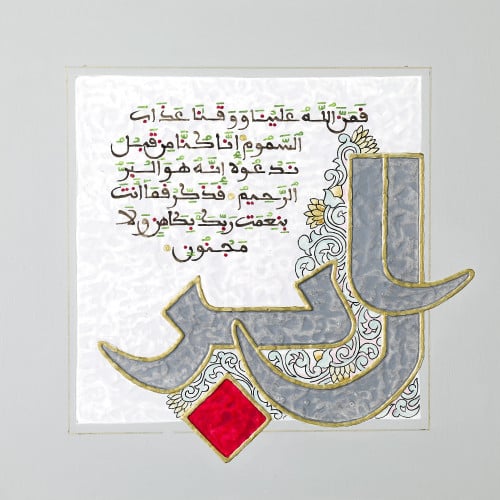 فَمَنَّ اللَّهُ عَلَيْنَا وَوَقَانَا عَذَابَ
السَّمُومِ إِنَّا كُنَّا مِن قَبْلُ
نَدْعُوهُ إِنَّهُ هُوَ الْبَرُّ
الرَّحِيمُ فَذَكِّرْ فَمَا أَنتَ
بِنِعْمَتِ رَبِّكَ بِكَاهِنٍ وَلَا
مَجْنُونٍ
البر